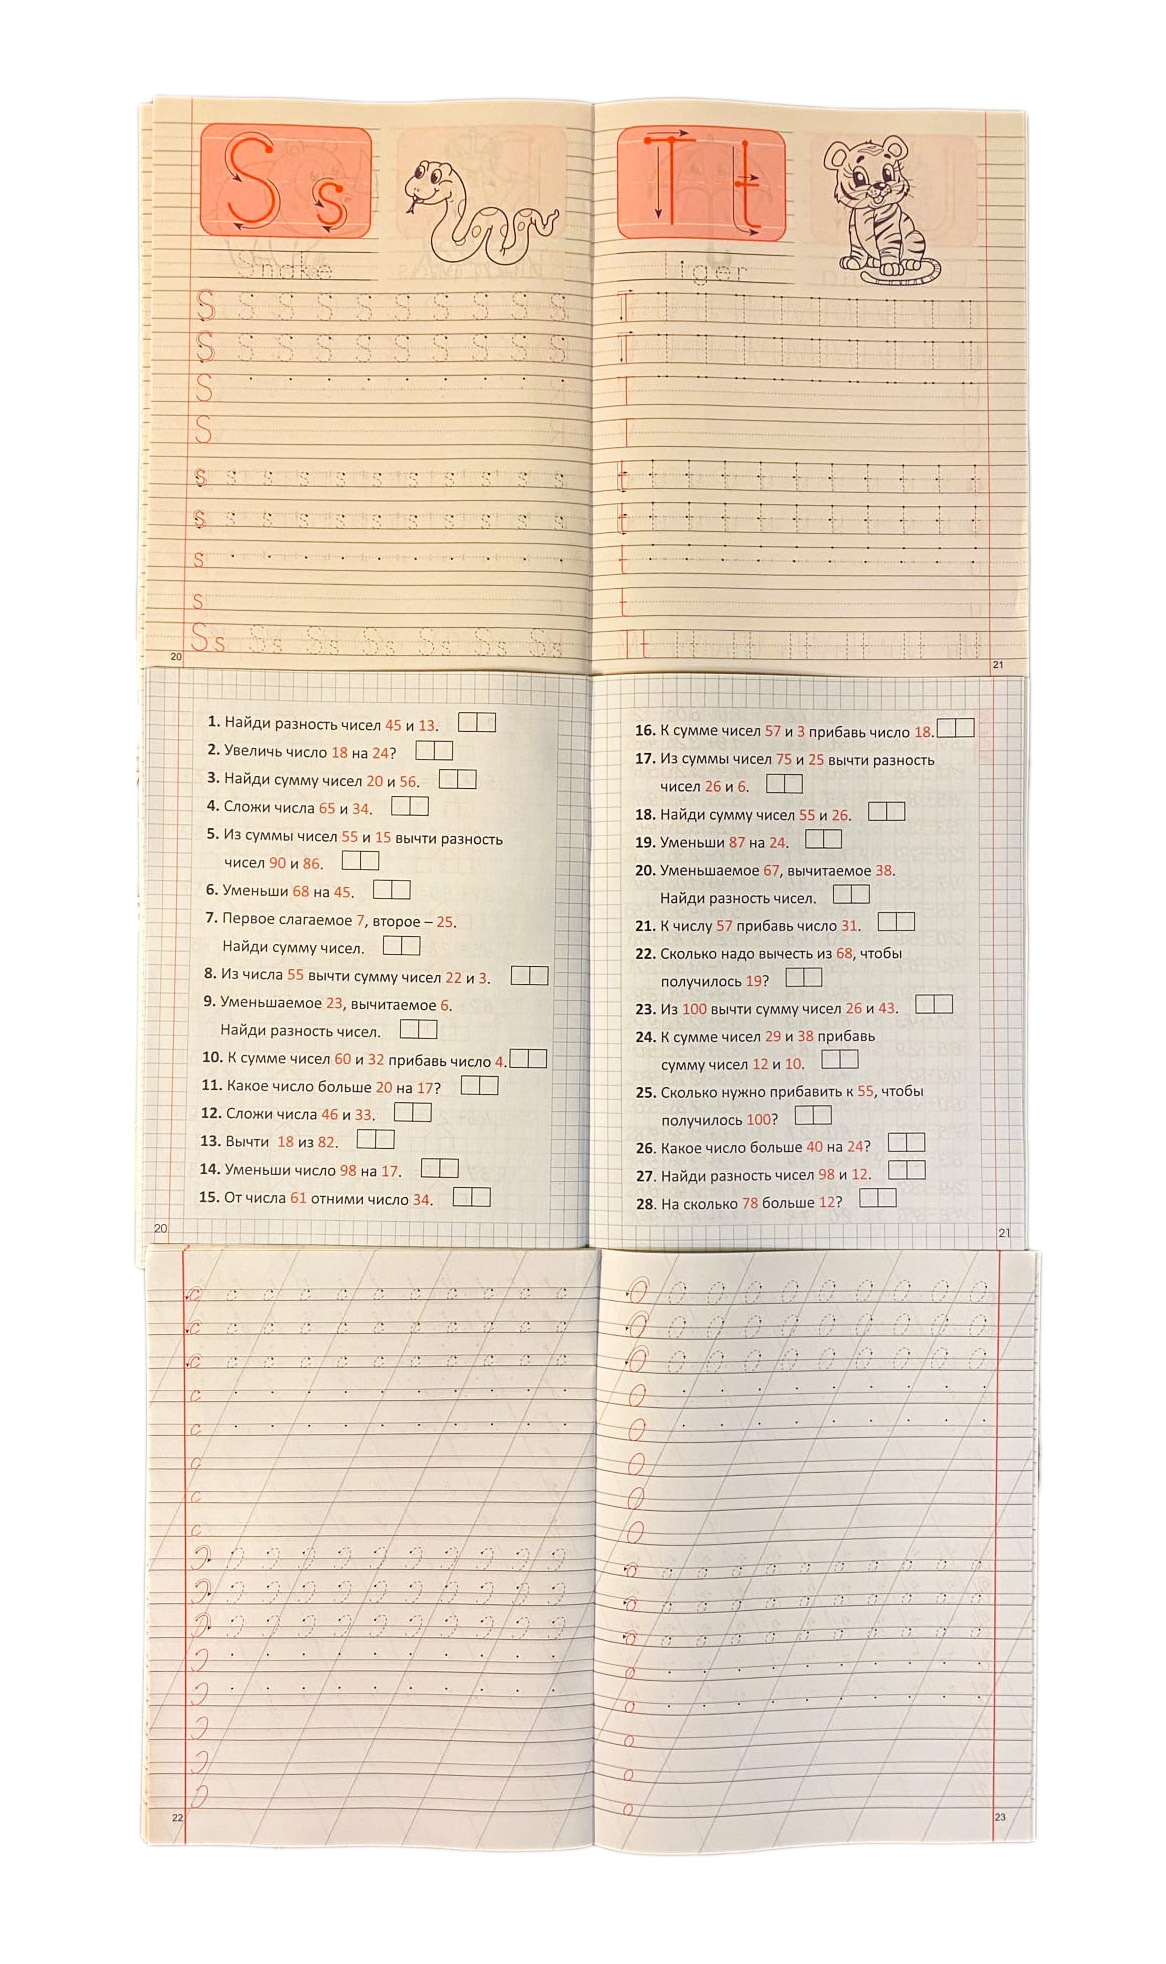 S s
Snake
S S S S S S S S S S
S S S S S S S S S S
S
S
s s s s s s s s s s s
s s s s s s s s s s s
s
s
Ss Ss Ss Ss Ss Ss Ss
20
T t
Tiger
T
T
T
T
t t t t t t t t t t t
t t t t t t t t t t t
t
t
Tt Tt Tt Tt Tt Tt Tt
21
1. Найди разность чисел 45 и 13.
2. Увеличь число 18 на 24?
3. Найди сумму чисел 20 и 56.
4. Сложи числа 65 и 34.
5. Из суммы чисел 55 и 15 вычти разность
чисел 90 и 86.
6. Уменьши 68 на 45.
7. Первое слагаемое 7, второе – 25.
Найди сумму чисел.
8. Из числа 55 вычти сумму чисел 22 и 3.
9. Уменьшаемое 23, вычитаемое 6.
Найди разность чисел.
10. К сумме чисел 60 и 32 прибавь число 4.
11. Какое число больше 20 на 17?
12. Сложи числа 46 и 33.
13. Вычти 18 из 82.
14. Уменьши число 98 на 17.
15. От числа 61 отними число 34.
20
16. К сумме чисел 57 и 3 прибавь число 18.
17. Из суммы чисел 75 и 25 вычти разность
чисел 26 и 6.
18. Найди сумму чисел 55 и 26.
19. Уменьши 87 на 24.
20. Уменьшаемое 67, вычитаемое 38.
Найди разность чисел.
21. К числу 57 прибавь число 31.
22. Сколько надо вычесть из 68, чтобы
получилось 19?
23. Из 100 вычти сумму чисел 26 и 43.
24. К сумме чисел 29 и 38 прибавь
сумму чисел 12 и 10.
25. Сколько нужно прибавить к 55, чтобы
получилось 100?
26. Какое число больше 40 на 24?
27. Найди разность чисел 98 и 12.
28. На сколько 78 больше 12?
21
22
23